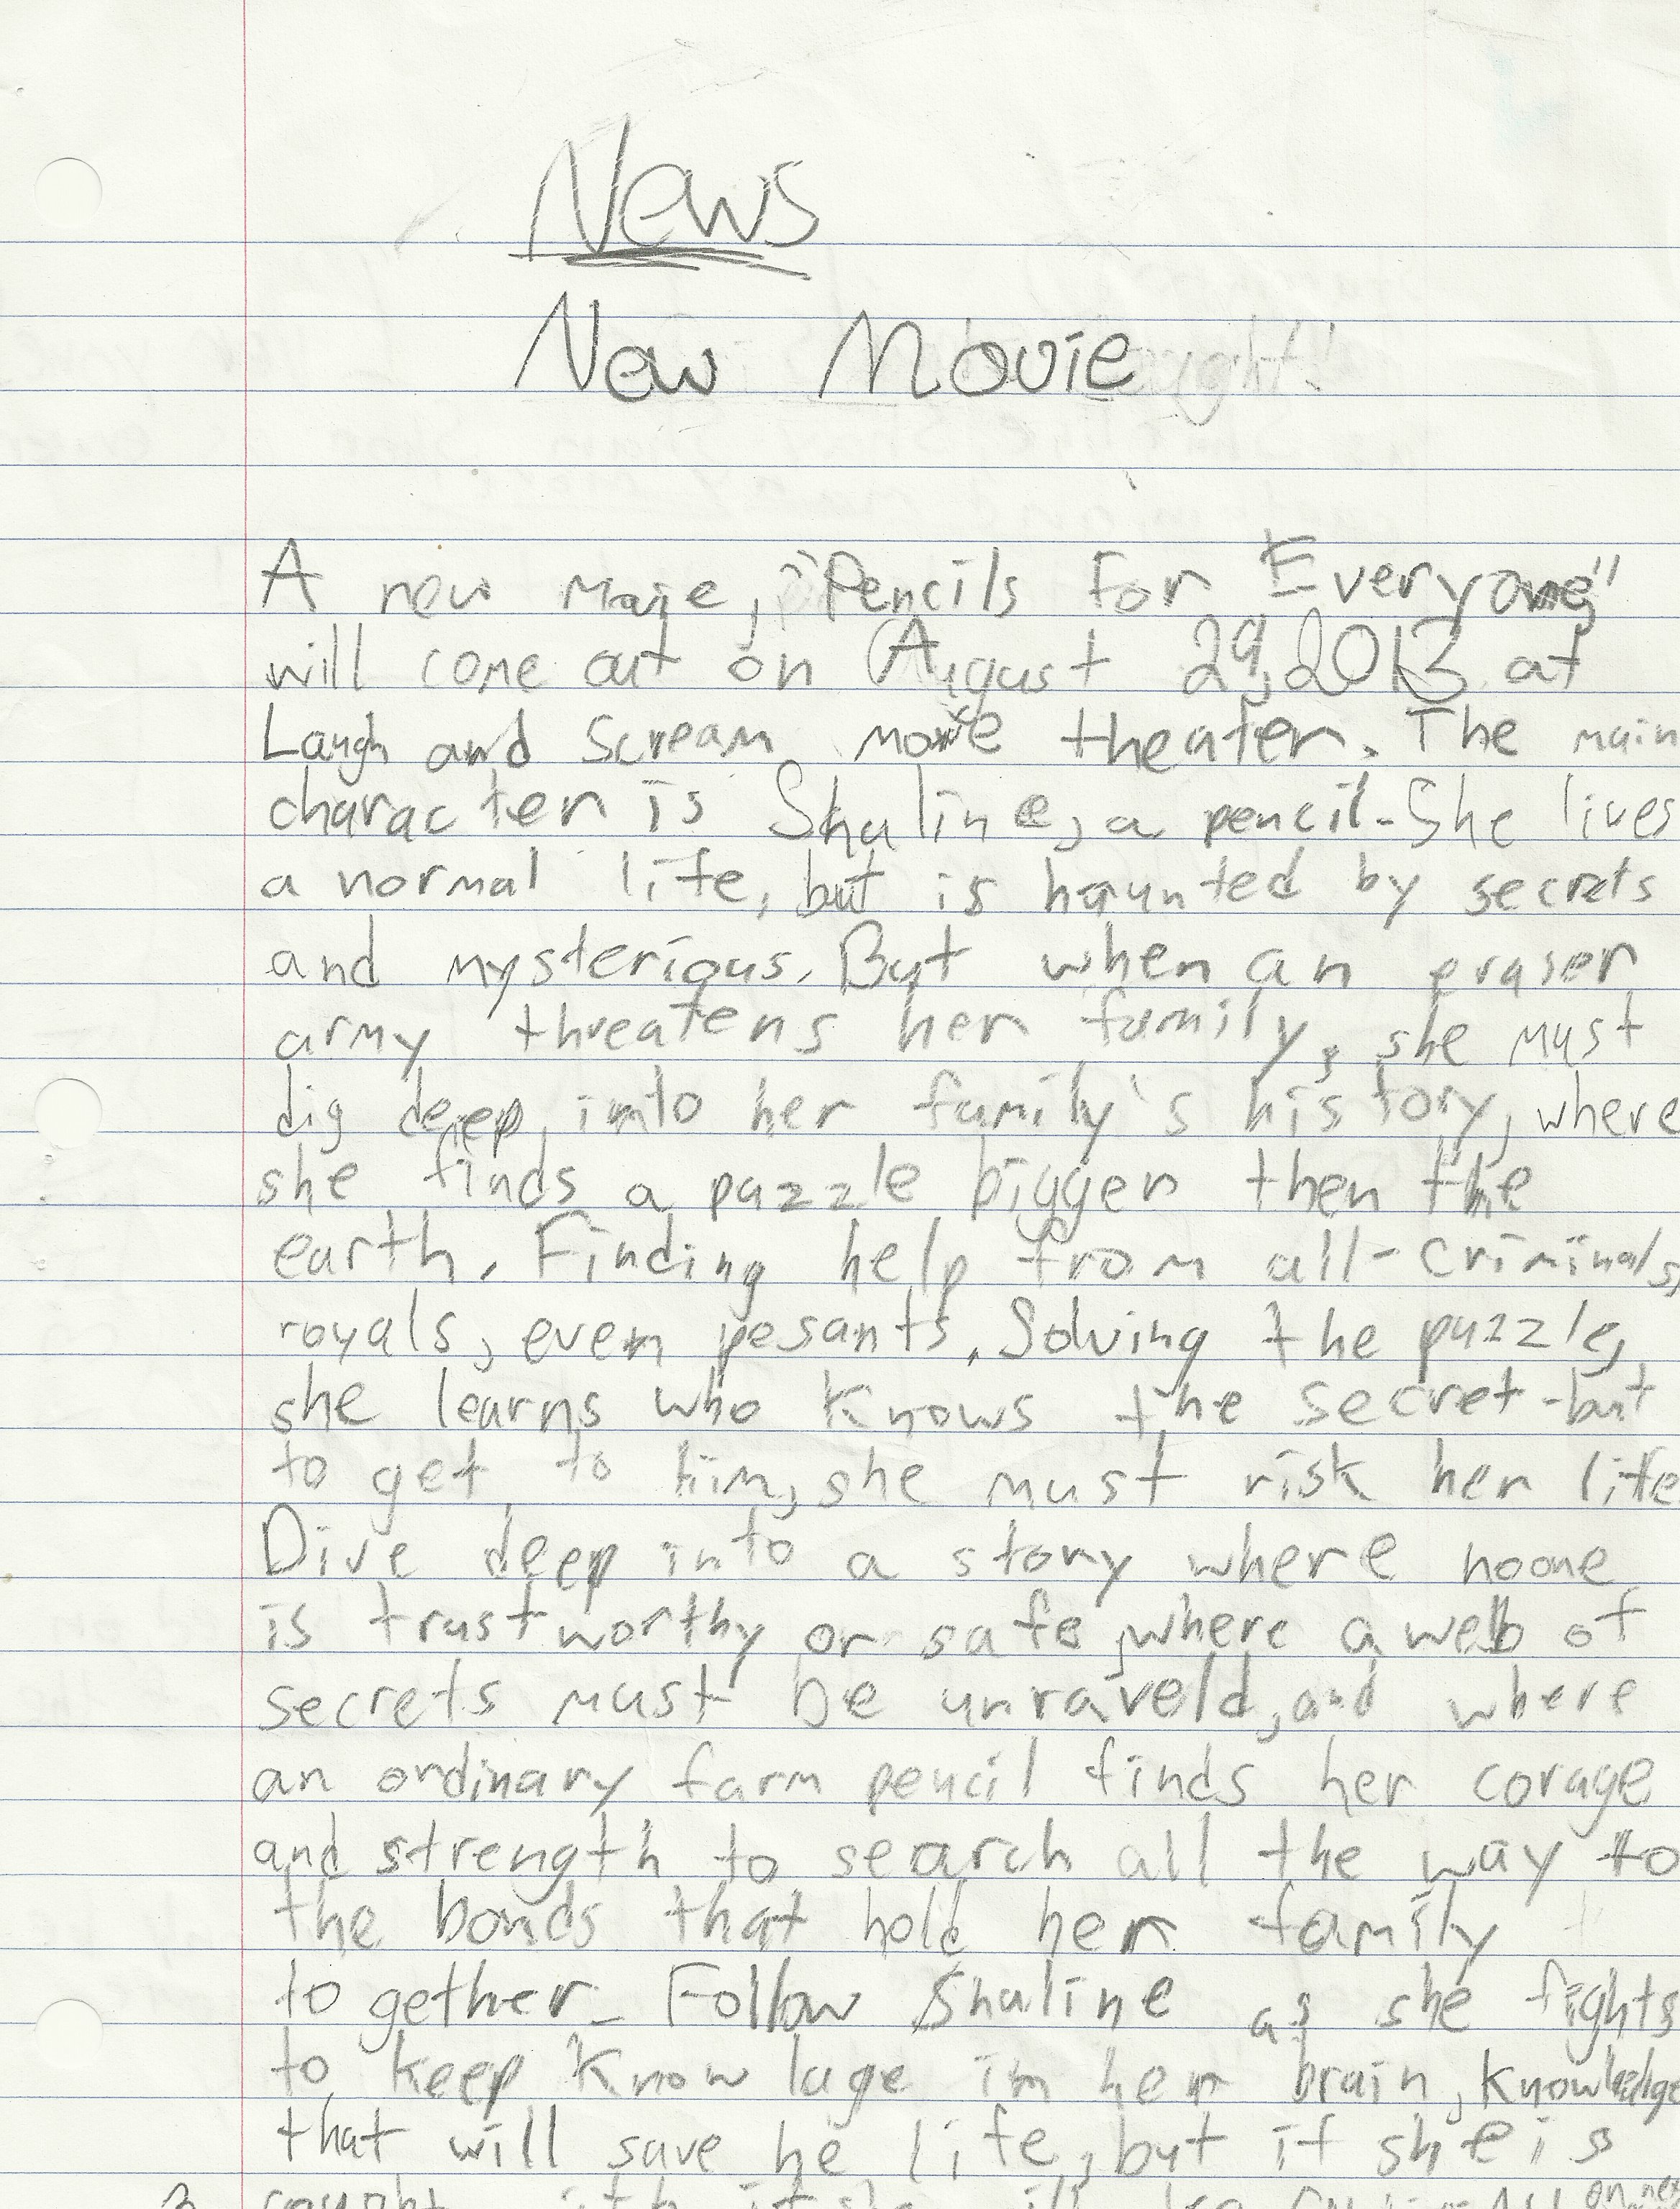 News
New Movie
A new movie, "Pencils for Everyone"
will come out on August 29, 2013 at
Laugh and Scream movie theater. The main
character is Shaline, a pencil. She lives
a normal life, but is haunted by secrets
and mysterious. But when an eraser
army threatens her family, she must
dig deep into her family's history, where
she finds a puzzle bigger then the
earth. Finding help from all-criminals,
royals, even pesants. Solving the puzzle,
she learns who knows the secret-but
to get to him, she must risk her life
Dive deep into a story where noone
is trustworthy or safe, where a web of
secrets must be unraveld, and where
an ordinary farm pencil finds her corage
and strength to search all the way to
the bonds that hold her family
together. Follow Shaline as she fights
to keep Know lage in her brain, knowledge
that will save he life, but if she is